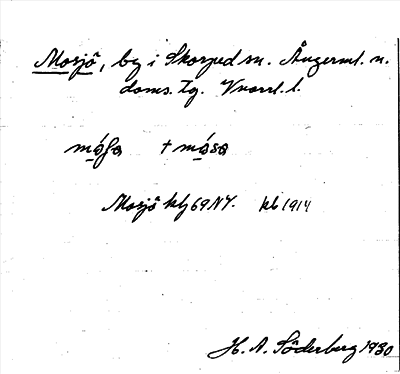 Mosjö, by i Skorped sn. Ångerml. n.
doms. tg. Vnorrl. l.
måſɑ + måsɑ
Mosjö kbl 69 NV. kb 1914
H. A. Söderberg 1930